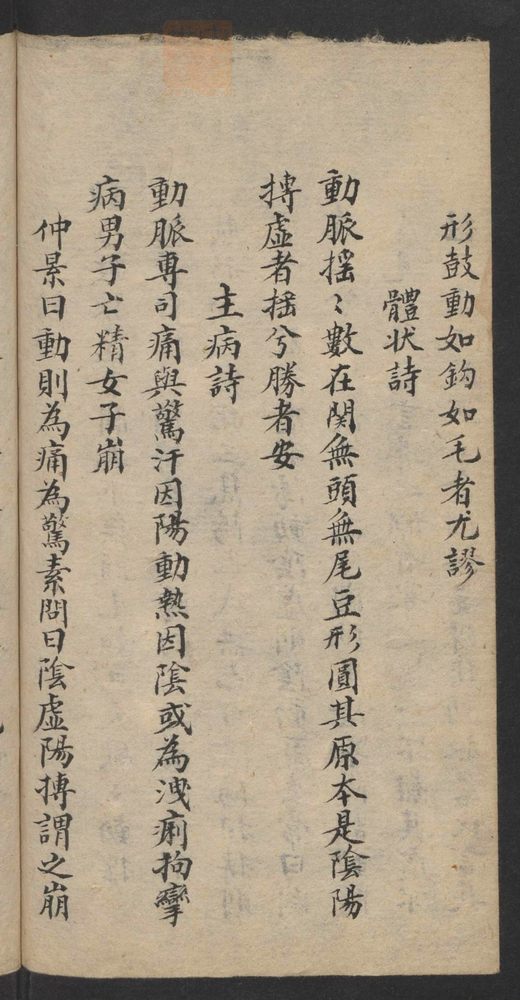 形鼓動如鈎如毛者尤謬
體状詩
動脈揺〻數在関無頭無尾豆形圓其原本是陰陽
搏虛者揺兮勝者安
主病詩
動脈專司痛與驚汗因陽動熱因陰或為洩痢拘攣
病男子亡精女子崩
仲景曰動則為痛為驚素問曰陰虛陽搏謂之崩